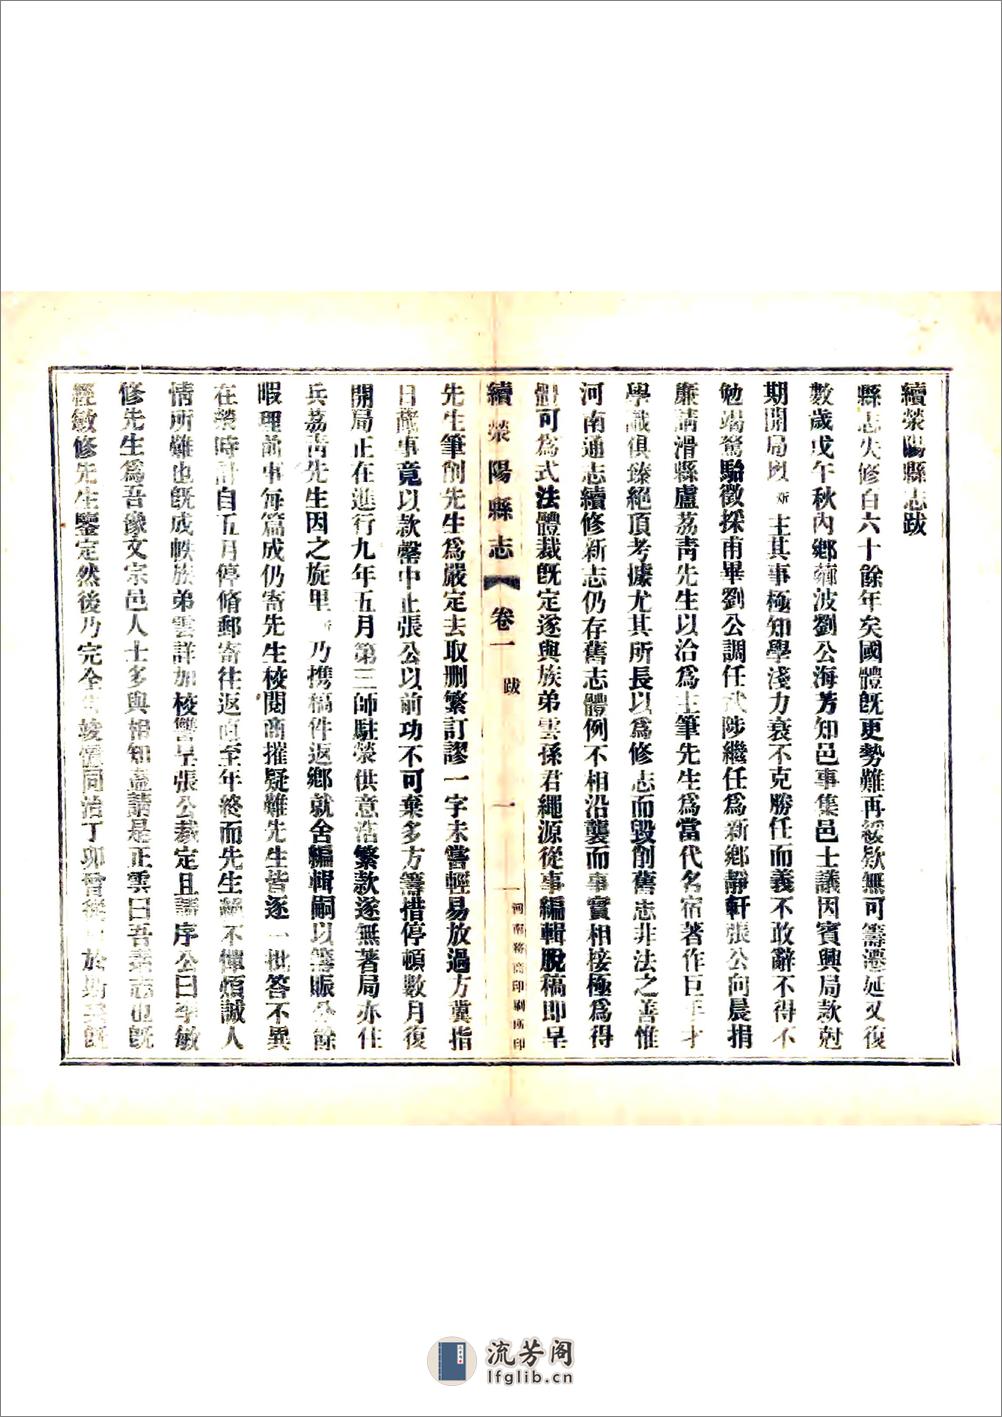 續滎陽縣志跋
縣志失修百六十餘年矣國體既更勢難再緩欵無可籌遷延又復
數歲戊午秋內鄉蘋波劉公海芳知邑事集邑士議因賓興局款尅
期開局與 主其事極知學淺力衰不克勝任而義不敢辭不得不
勉竭駑駘徵採甫畢劉公調任武陟繼任為新鄉靜軒張公向晨捐
廉請滑縣盧荔靑先生以洽為主筆先生為當代名宿著作巨手才
學識俱臻絕頂考據尤其所長以為修志而毀削舊志非法之善惟
河南通志續修新志仍存舊志體例不相沿襲而事實相接極為得
體可為式法體裁既定遂與族弟雲孫君繩源從事編輯脫稿即呈
續滎陽縣志 卷一 跋 一 河南商印刷所印
先生筆削先生為嚴定去取刪繁訂謬一字未嘗輕易放過方冀指
日蕆事竟以款罄中止張公以前功不可棄多方籌措停頓數月復
開局正在進行九年五月第三師駐滎供意浩繁款遂無著局亦住
兵荔靑先生因之旋里 乃携稿件返鄉就舍編輯嗣以籌賑公餘
暇理前事每篇成仍寄先生校閱商摧疑難先生皆逐一批答不異
在滎時計自五月停脩郵寄往返直至年終而先生不憚煩誠人
情所難也既成帙族弟雲詳加校讐呈張公裁定且請序公曰李敏
修先生為吾豫文宗邑人士多與相知盍請是正雲曰吾素志也既
經敏修先生鑒定然後乃完全告竣憶同治丁卯曾於既